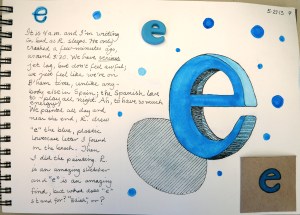 5·22·13
It is 4 a.m. and I'm writing
in bed as R. sleeps. He only
crashed a few minutes ago,
around 3:30. We have
jet lag, but don't feel awful;
we just feel like we're on
B'ham time, unlike any-
body else in Spain; the Spanish, love
to "play all night. Ah, to have so much
energy!
We painted all day and
near the end, R. drew
"e" the blue, plastic
lowercase letter I found
in the beach. Then
I did the painting. R
is an amazing sketcher
and "e" is an amazing
find, but what does "e"
stand for?
e
e
e
e